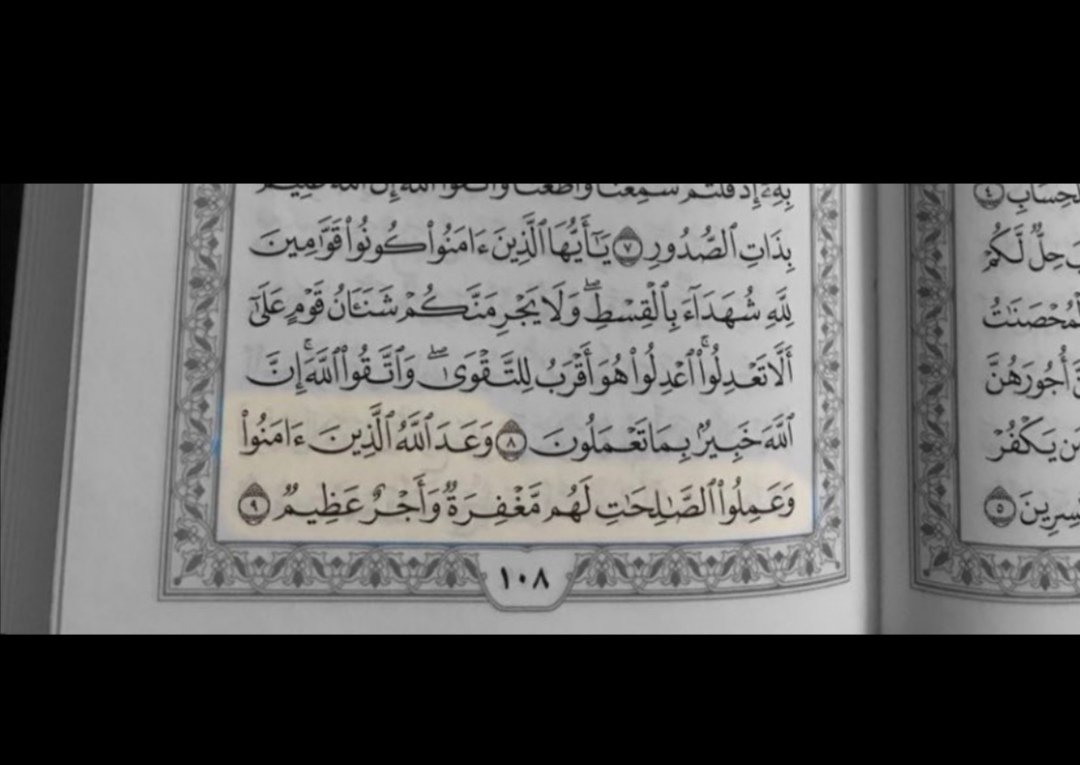 بِهِۦٓ إِذۡ قُلۡتُمۡ سَمِعۡنَا وَأَطَعۡنَا وَٱتَّقُواْ ٱللَّهَ إِنَّ ٱللَّهَ عَلِيمُۢ
بِذَاتِ ٱلصُّدُورِ ٧ يَٰٓأَيُّهَا ٱلَّذِينَ ءَامَنُواْ كُونُواْ قَوَّٰمِينَ
لِلَّهِ شُهَدَآءَ بِٱلۡقِسۡطِۖ وَلَا يَجۡرِمَنَّكُمۡ شَنَـَٔانُ قَوۡمٍ عَلَىٰٓ
أَلَّا تَعۡدِلُواْۚ ٱعۡدِلُواْ هُوَ أَقۡرَبُ لِلتَّقۡوَىٰۖ وَٱتَّقُواْ ٱللَّهَۚ إِنَّ
ٱللَّهَ خَبِيرُۢ بِمَا تَعۡمَلُونَ ٨ وَعَدَ ٱللَّهُ ٱلَّذِينَ ءَامَنُواْ
وَعَمِلُواْ ٱلصَّٰلِحَٰتِ لَهُم مَّغۡفِرَةٞ وَأَجۡرٌ عَظِيمٞ ٩
١٠٨
ٱلۡحِسَابِ ٤
حِلّٞ لَّكُمۡ
ٱلۡمُحۡصَنَٰتُ
أُجُورَهُنَّ
مَن يَكۡفُرۡ
٥